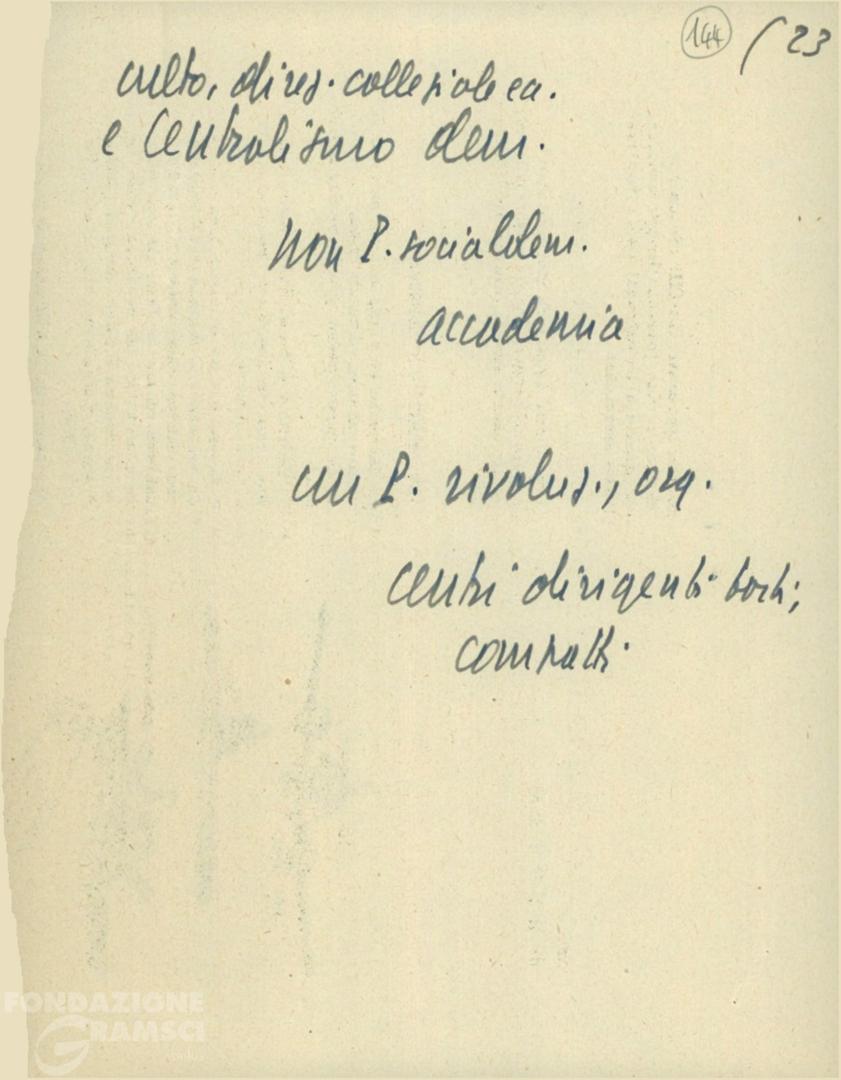 144 / 23
culto, direz. collegiale ecc.
e Centralismo dem.
non P. socialdem.
accademia
un P. rivoluz., org.
Centri dirigenti forti,
compatti
FONDAZIONE
GRAMSCI